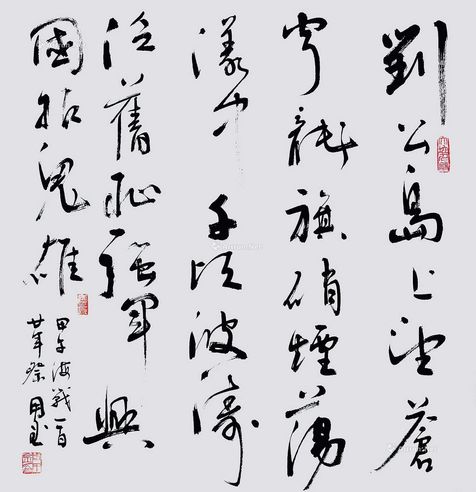 劉公島上望蒼
穹龍旗硝煙蕩
漾中千頃波濤
泛舊恥強軍興
國招鬼雄
甲午海戰一百
廿年祭